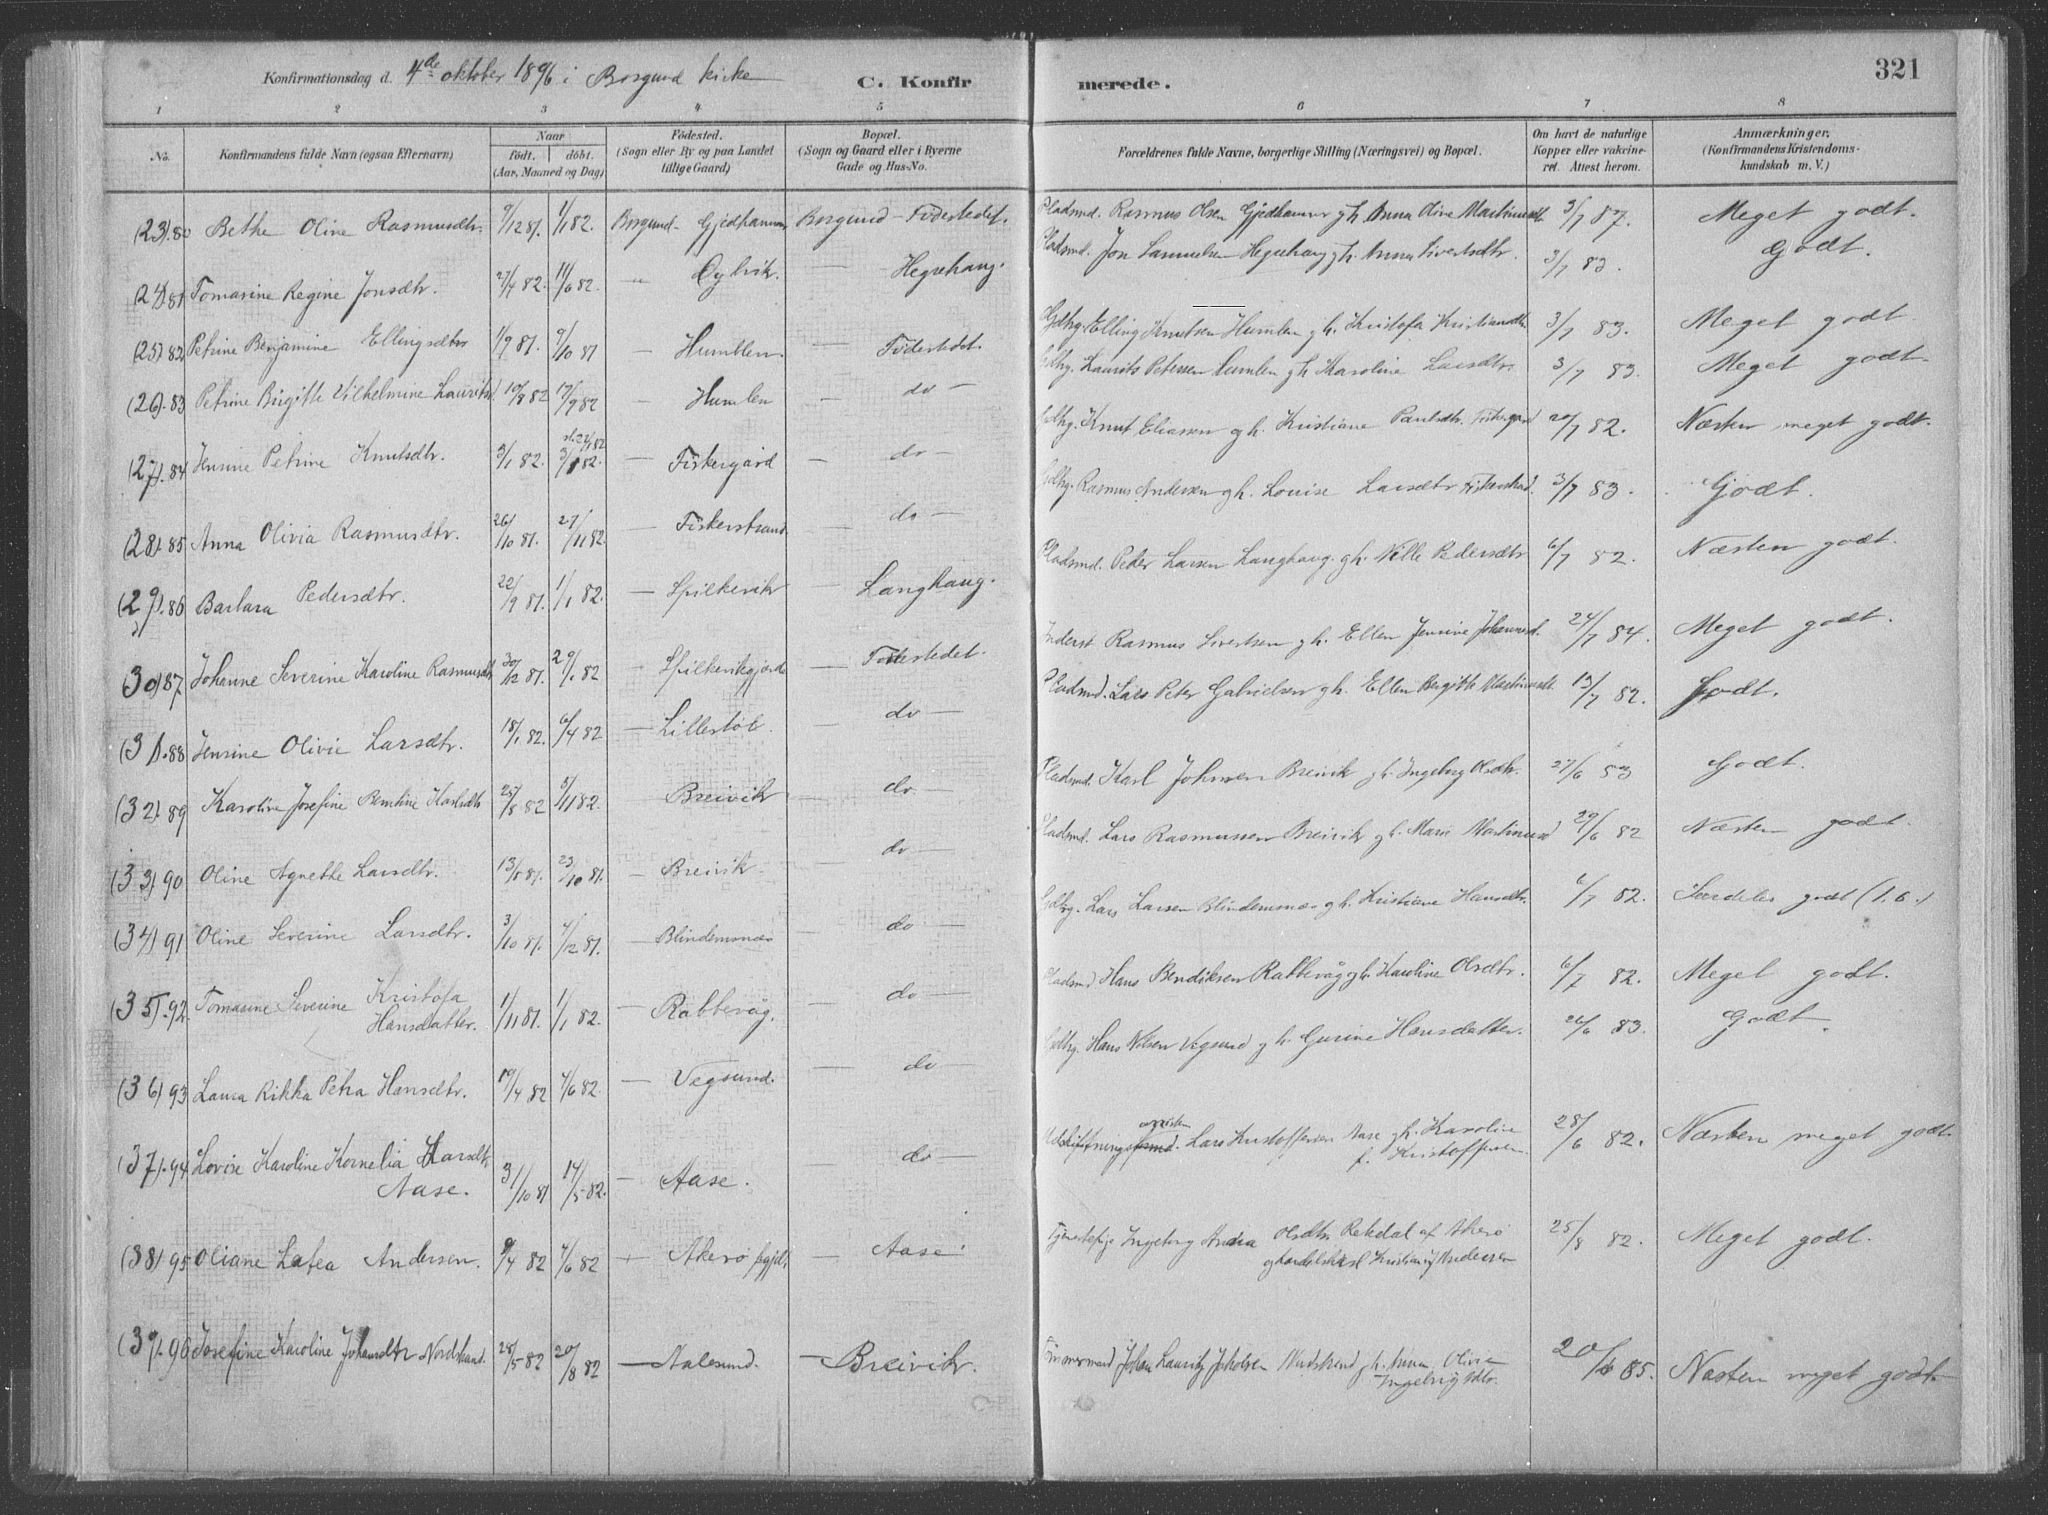 Konfirmationsdag d. 4de oktober 1896 i Borgund kirke C. Konfirmerede. 321
1 2 3 4 5 6 7 8
No. Konfirmandens fulde Navn (ogsaa Efternavn) Naar födt. döbt. (Aar, Maaned og Dag) Födested. (Sogn eller By og paa Landet tillige Gaard) Bopæl. (Sogn og Gaard eller i Byerne Gade og Hus-No. Forældrenes fulde Navne, borgerlige Stilling (Næringsvei) og Bopæl. Om havt de naturlige Kopper eller vakcineret. Attest herom. Anmærkninger. (Konfirmandens Kristendomskundskab m. V.)
(23). 80 Bethe Oline Rasmusdtr. 9/12 81. 1/1 82. Borgund - Gjedhammer Borgund - Födestedet. Pladsmd. Rasmus Olsen Gjedhammer gh. Anna Oline Martinusdtr 3/7 87. Meget godt.
(24) 81 Tomasine Regine Jonsdtr. 27/4 82. 11/6 82. — — Hegrehaug. Pladsmd. Jon Samuelsen Hegrehaug gh. Anna Sivertsdtr. 3/7 83. Godt.
(25). 82 Petrine Benjamine Ellingsdtr 1/9 81. 9/10 81 — Humblen. — Födestedet. Gdbrg. Elling Knutsen Humlen gh. Kristofa Kristiansdtr. 3/7 83. Meget godt
(26). 83 Petrine Birgitte Vilhelmine Lauritsd. 10/8 82 17/9 82 — Humlen — do — Gdbrg. Laurits Petersen Humlen gh. Karoline Larsdtr. 3/7 83. Meget godt.
(27). 84 Jensine Petrine Knutsdtr. 3/1 82. — Fiskergård — do — Gdbrg. Knut Eliasen gh. Kristiane Paulsdtr. Fiskergård 20/7 82. Næsten meget godt.
(28). 85 Anna Olivia Rasmusdtr. 26/10 81. 27/11 82. — Fiskerstrand. — do — Gdbrg. Rasmus Andersen gh. Louise Larsdtr Fiskerstrand. 3/7 83. Godt.
(29). 86 Barbara Pedersdtr. 22/9 81. 1/1 82. — Spilkevik — Langhaug. Pladsmd. Peder Larsen Langhaug. gh. Nille Pedersdtr 6/7 82. Næsten godt.
(30) 87 Johanne Severine Karoline Rasmusdtr 30/12 81. 29/1 82 — Spilkevikgjerde — Födestedet. Inderst Rasmus Sivertsen gh. Ellen Jensine Johannesd. 24/7 84. Meget godt.
(31). 88 Jensine Olivie Larsdtr. 18/1 82. 6/4 82 — Lillestöl. — do — Pladsmd. Lars Peter Gabrielsen gh. Ellen Bergitte Martinusdt. 13/7 82. Godt.
(32). 89 Karoline Josefine Berntine Karlsdtr 25/8 82 5/11 82. — Breivik — do — Pladsmd. Karl Johnsen Breivik gh. Ingeborg Olsdtr. 27/6 83 Godt.
(33) 90 Oline Agnethe Larsdtr. 13/8 81. 23/10 81. — Breivik. — do — Pladsmd. Lars Rasmussen Breivik gh. Maris Martinusd 29/6 82 Næsten godt.
(34) 91 Oline Severine Larsdtr. 3/10 81. 4/12 81. — Blindemsnæs — do — Gdbrg. Lars Larsen Blindemsnæs gh. Kristiane Hansdtr. 6/7 82. Særdeles godt (1.6.)
(35). 92 Tomasine Severine Kristofa Hansdatter. 1/11 81. 1/1 82. — Rabbevåg. — do — Pladsmd Hans Bendiksen Rabbevåg gh. Karoline Olsdtr. 6/7 82. Meget godt.
(36) 93 Laura Rikka Petra Hansdtr. 19/4 82 4/6 82. — Vegsund. — do — Gdbrg. Hans Nilsen Vegsund gh. Gurine Hansdatter. 26/6 83. Godt.
(37). 94 Lovise Karoline Kornelia Larsdtr Aase. 31/10 81 14/5 82. — Aase. — do — Udskiftningsformd. Lars Kristoffersen Aase gh. Karoline f. Kristoffersen. 28/6 82. Næsten meget godt.
(38) 95 Oliane Lafea Andersen. 9/4 82 4/6 82 — Akerö — Aase. Tjenestepige Ingeborg Andrea Olsdtr. Rekdal af Akerö og handelskarl Kristian Andersen 25/8 82. Meget godt.
(39). 96 Josefine Karoline Johansdtr Nordstrand. 28/5 82 20/8 82 — Aalesund. — Breivik. Tömmermand Johan Lauritz Jakobsen Nordstrand gh. Anna Olivia Ingebrigtsdtr. 20/6 85. Næsten meget godt.